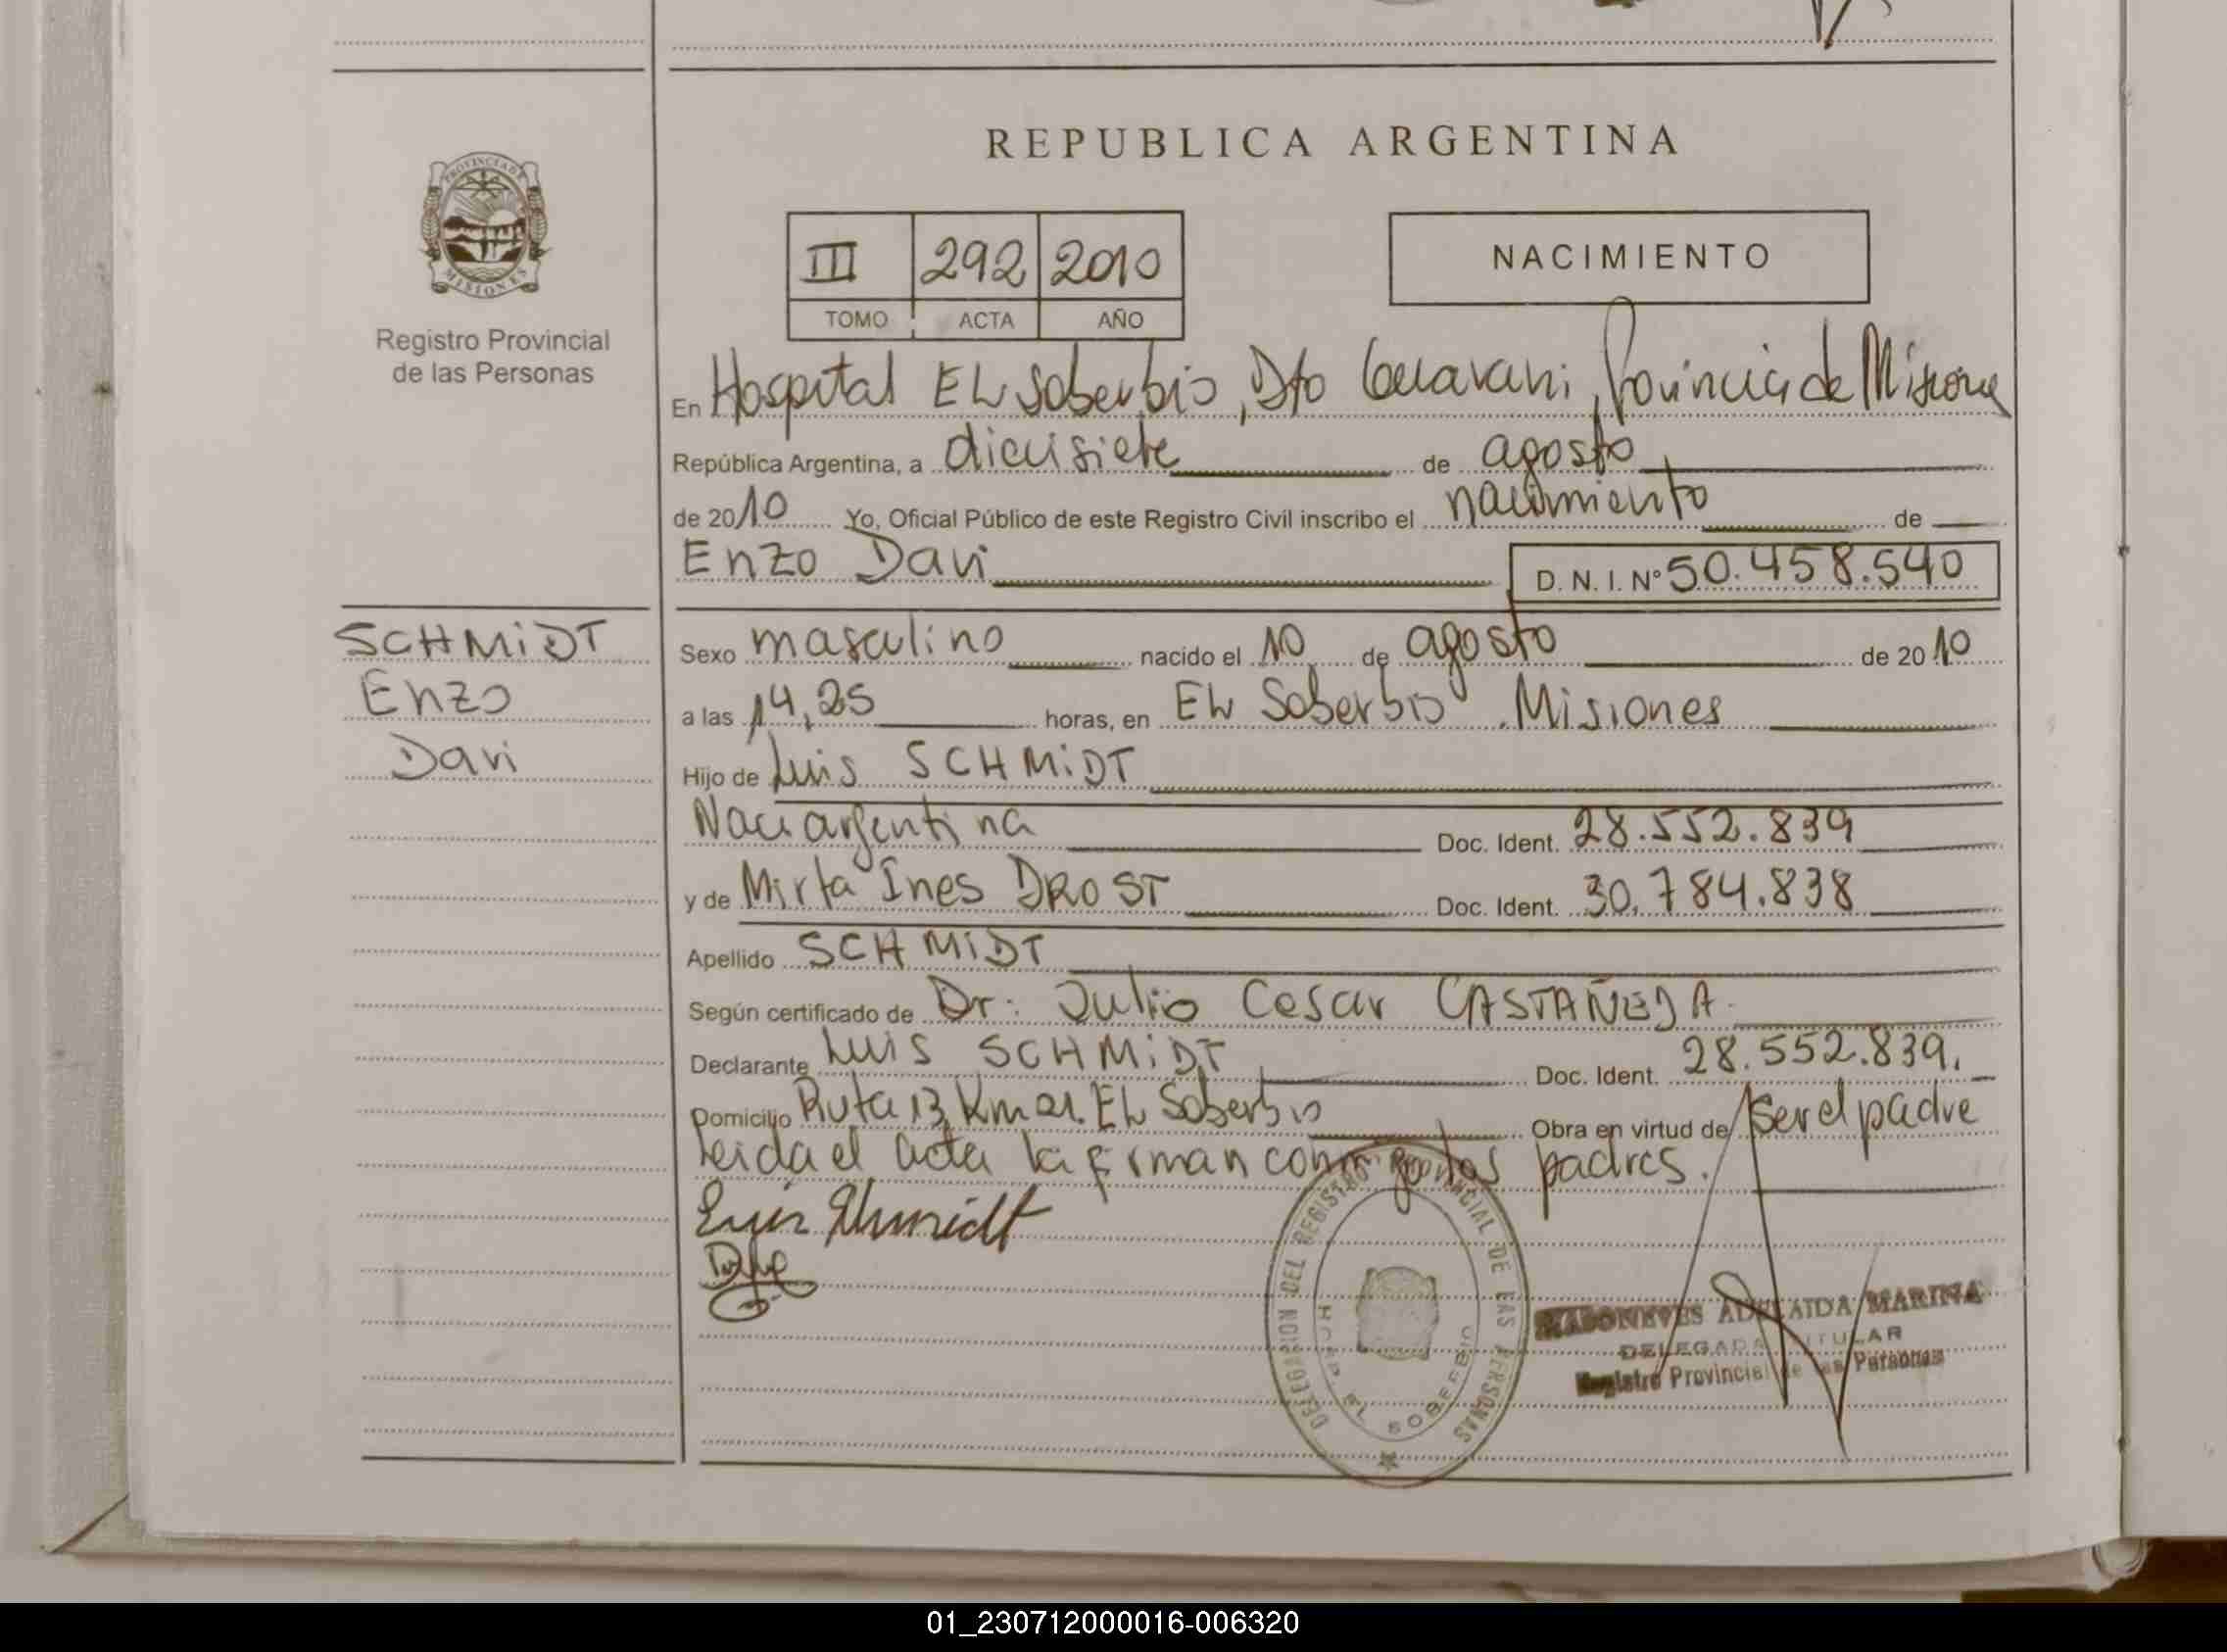 REPUBLICA ARGENTINA
PROVINCIA DE
MISIONES
Registro Provincial
de las Personas
III 292 2010
TOMO ACTA AÑO
NACIMIENTO
En Hospital EL Soberbio, Dto Guarani, Provincia de Misiones
República Argentina, a diecisiete de agosto
de 2010 Yo, Oficial Público de este Registro Civil inscribo el nacimiento de
Enzo Davi D. N. I. Nº 50.458.540
SCHMiDT
Enzo
Davi
Sexo masculino nacido el 10 de agosto de 2010
a las 14,25 horas, en EL Soberbio Misiones
Hijo de Luis SCHMiDT
Naci argentina Doc. Ident. 28.552.839
y de Mirta Ines DROST Doc. Ident. 30.784.838
Apellido SCHMiDT
Según certificado de Dr: Julio Cesar CASTAÑEDA
Declarante Luis SCHMiDT Doc. Ident. 28.552.839.
Domicilio Ruta 13 Km 21. EL Soberbio Obra en virtud de ser el padre
Leida el acta la firman conmigo los padres.
Luis Schmidt
DELEGACION DEL REGISTRO PROVINCIAL DE LAS PERSONAS
EL SOBERBIO
ADELAIDA MARINA
DELEGADA TITULAR
Registro Provincial de las Personas
01_230712000016-006320